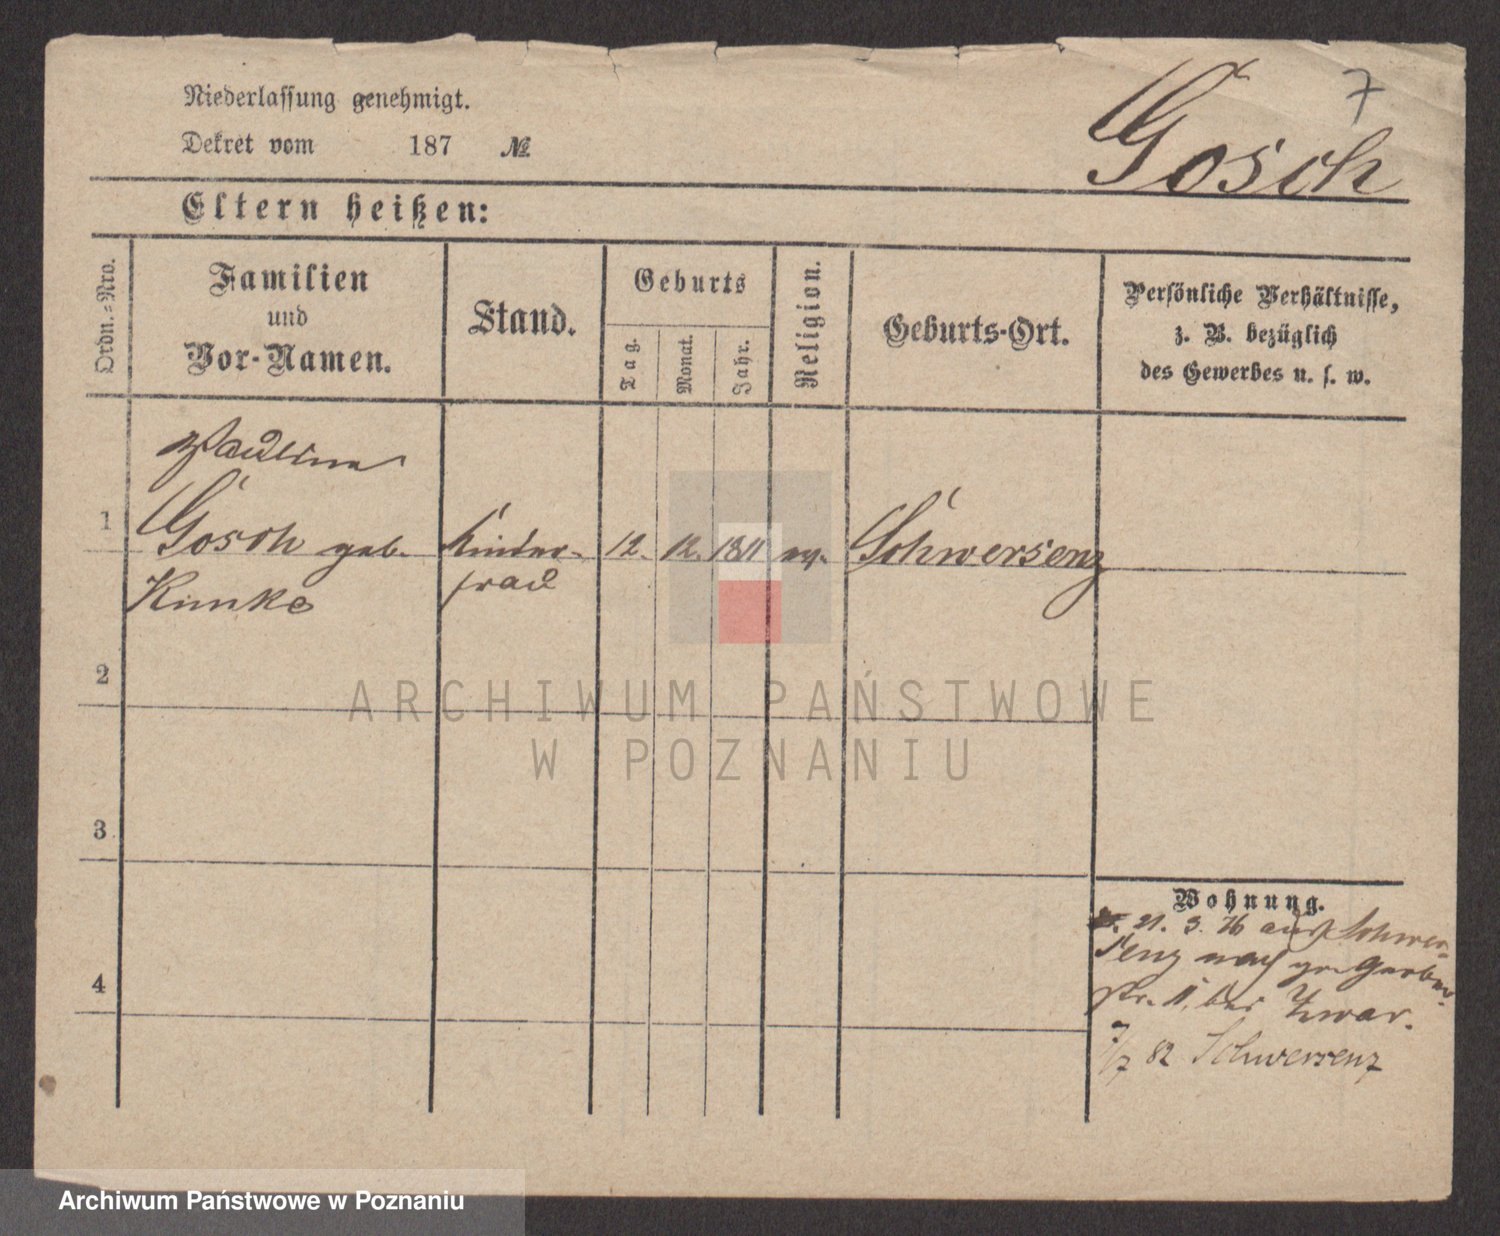 Niederlassung genehmigt.
Dekret vom 187 №
7
Gosch
Eltern heißen:
Ordn.=Nro.
Familien
und
Vor-Namen.
Stand.
Geburts
Tag.
Monat.
Jahr.
Religion.
Geburts-Ort.
Persönliche Verhältnisse,
z. B. bezüglich
des Gewerbes u. s. w.
Pauline
1 Gosch geb. Kinder- 12. 12. 1811 ev. Schwersenz
frau
2
3
4
Wohnung.
21. 3. 76 aus Schwer-
senz nach gr. Gerber
str. 11, bei
7/7 82 Schwersenz
ARCHIWUM PAŃSTWOWE
W POZNANIU
Archiwum Państwowe w Poznaniu